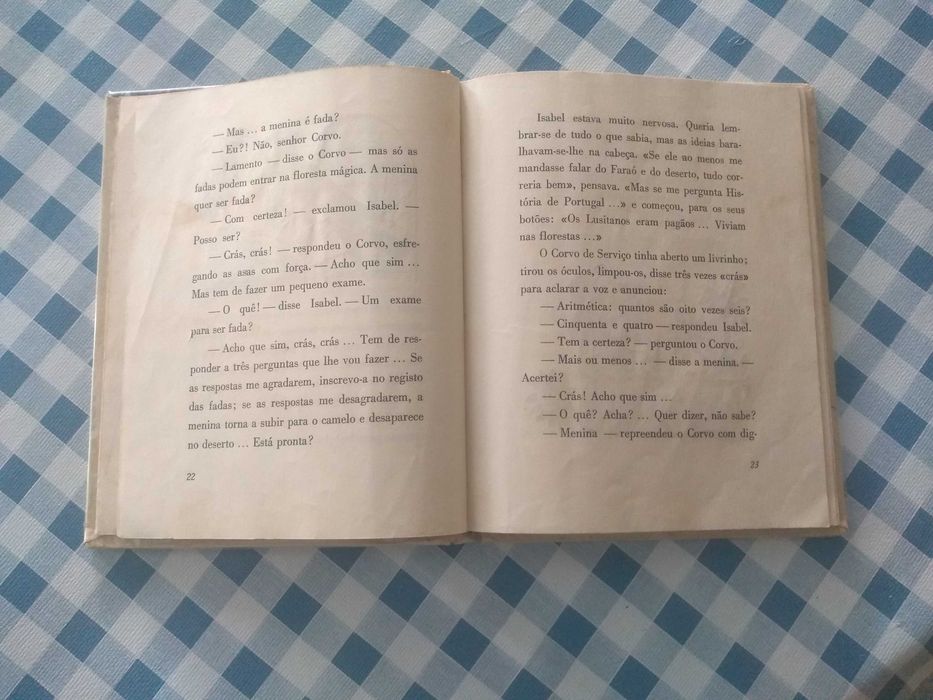 — Mas ... a menina é fada?
— Eu?! Não, senhor Corvo.
— Lamento — disse o Corvo — mas só as
fadas podem entrar na floresta mágica. A menina
quer ser fada?
— Com certeza! — exclamou Isabel. —
Posso ser?
— Crás, crás! — respondeu o Corvo, esfre-
gando as asas com força. — Acho que sim ...
Mas tem de fazer um pequeno exame.
— O quê! — disse Isabel. — Um exame
para ser fada?
— Acho que sim, crás, crás ... Tem de res-
ponder a três perguntas que lhe vou fazer ... Se
as respostas me agradarem, inscrevo-a no registo
das fadas; se as respostas me desagradarem, a
menina torna a subir para o camelo e desaparece
no deserto ... Está pronta?
22
Isabel estava muito nervosa. Queria lem-
brar-se de tudo o que sabia, mas as ideias bara-
lhavam-se-lhe na cabeça. «Se ele ao menos me
mandasse falar do Faraó e do deserto, tudo cor-
reria bem», pensava. «Mas se me pergunta His-
tória de Portugal ...» e começou, para os seus
botões: «Os Lusitanos eram pagãos ... Viviam
nas florestas ...»
O Corvo de Serviço tinha aberto um livrinho;
tirou os óculos, limpou-os, disse três vezes «crás»
para aclarar a voz e anunciou:
— Aritmética: quantos são oito vezes seis?
— Cinquenta e quatro — respondeu Isabel.
— Tem a certeza? — perguntou o Corvo.
— Mais ou menos ... — disse a menina. —
Acertei?
— Crás! Acho que sim ...
— O quê? Acha? ... Quer dizer, não sabe?
— Menina — repreendeu o Corvo com dig-
23